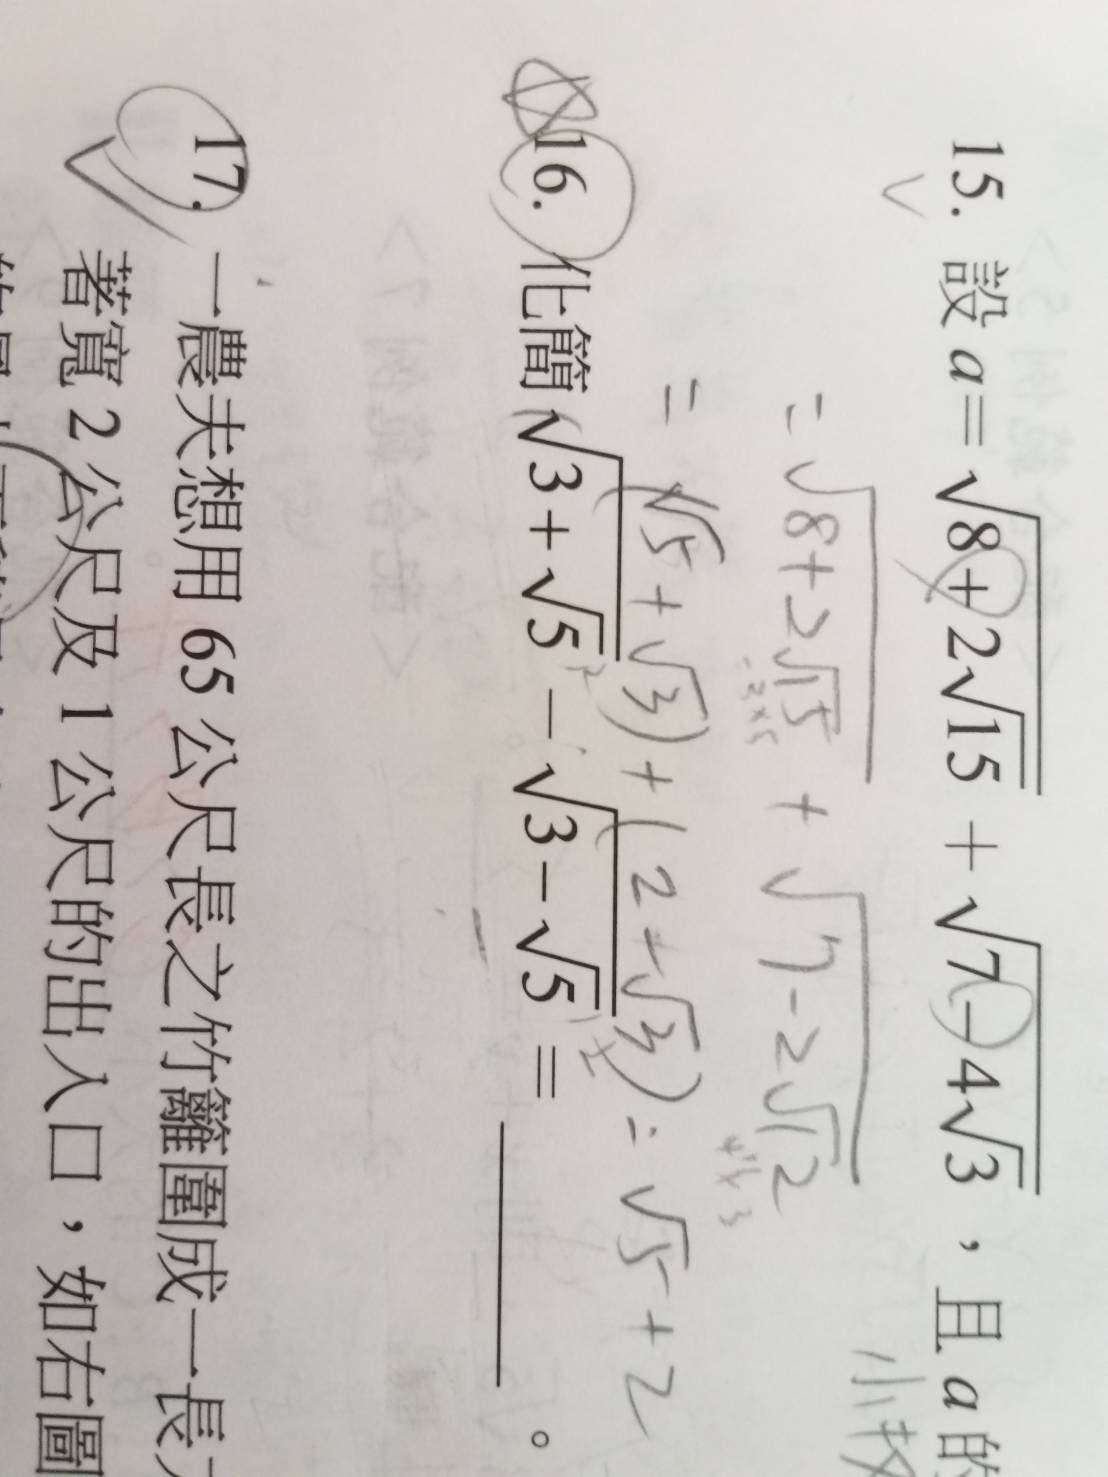 15. 設 a=√8+2√15 + √7-4√3 ，且 a 的
小數
= √8+2√15 + √7-2√12
=3×5 4×3
= (√5+√3)+(2-√3) = √5+2
16. 化簡 √3+√5 - √3-√5 = ______ 。
17. 一農夫想用 65 公尺長之竹籬圍成一長
著寬 2 公尺及 1 公尺的出入口，如右圖